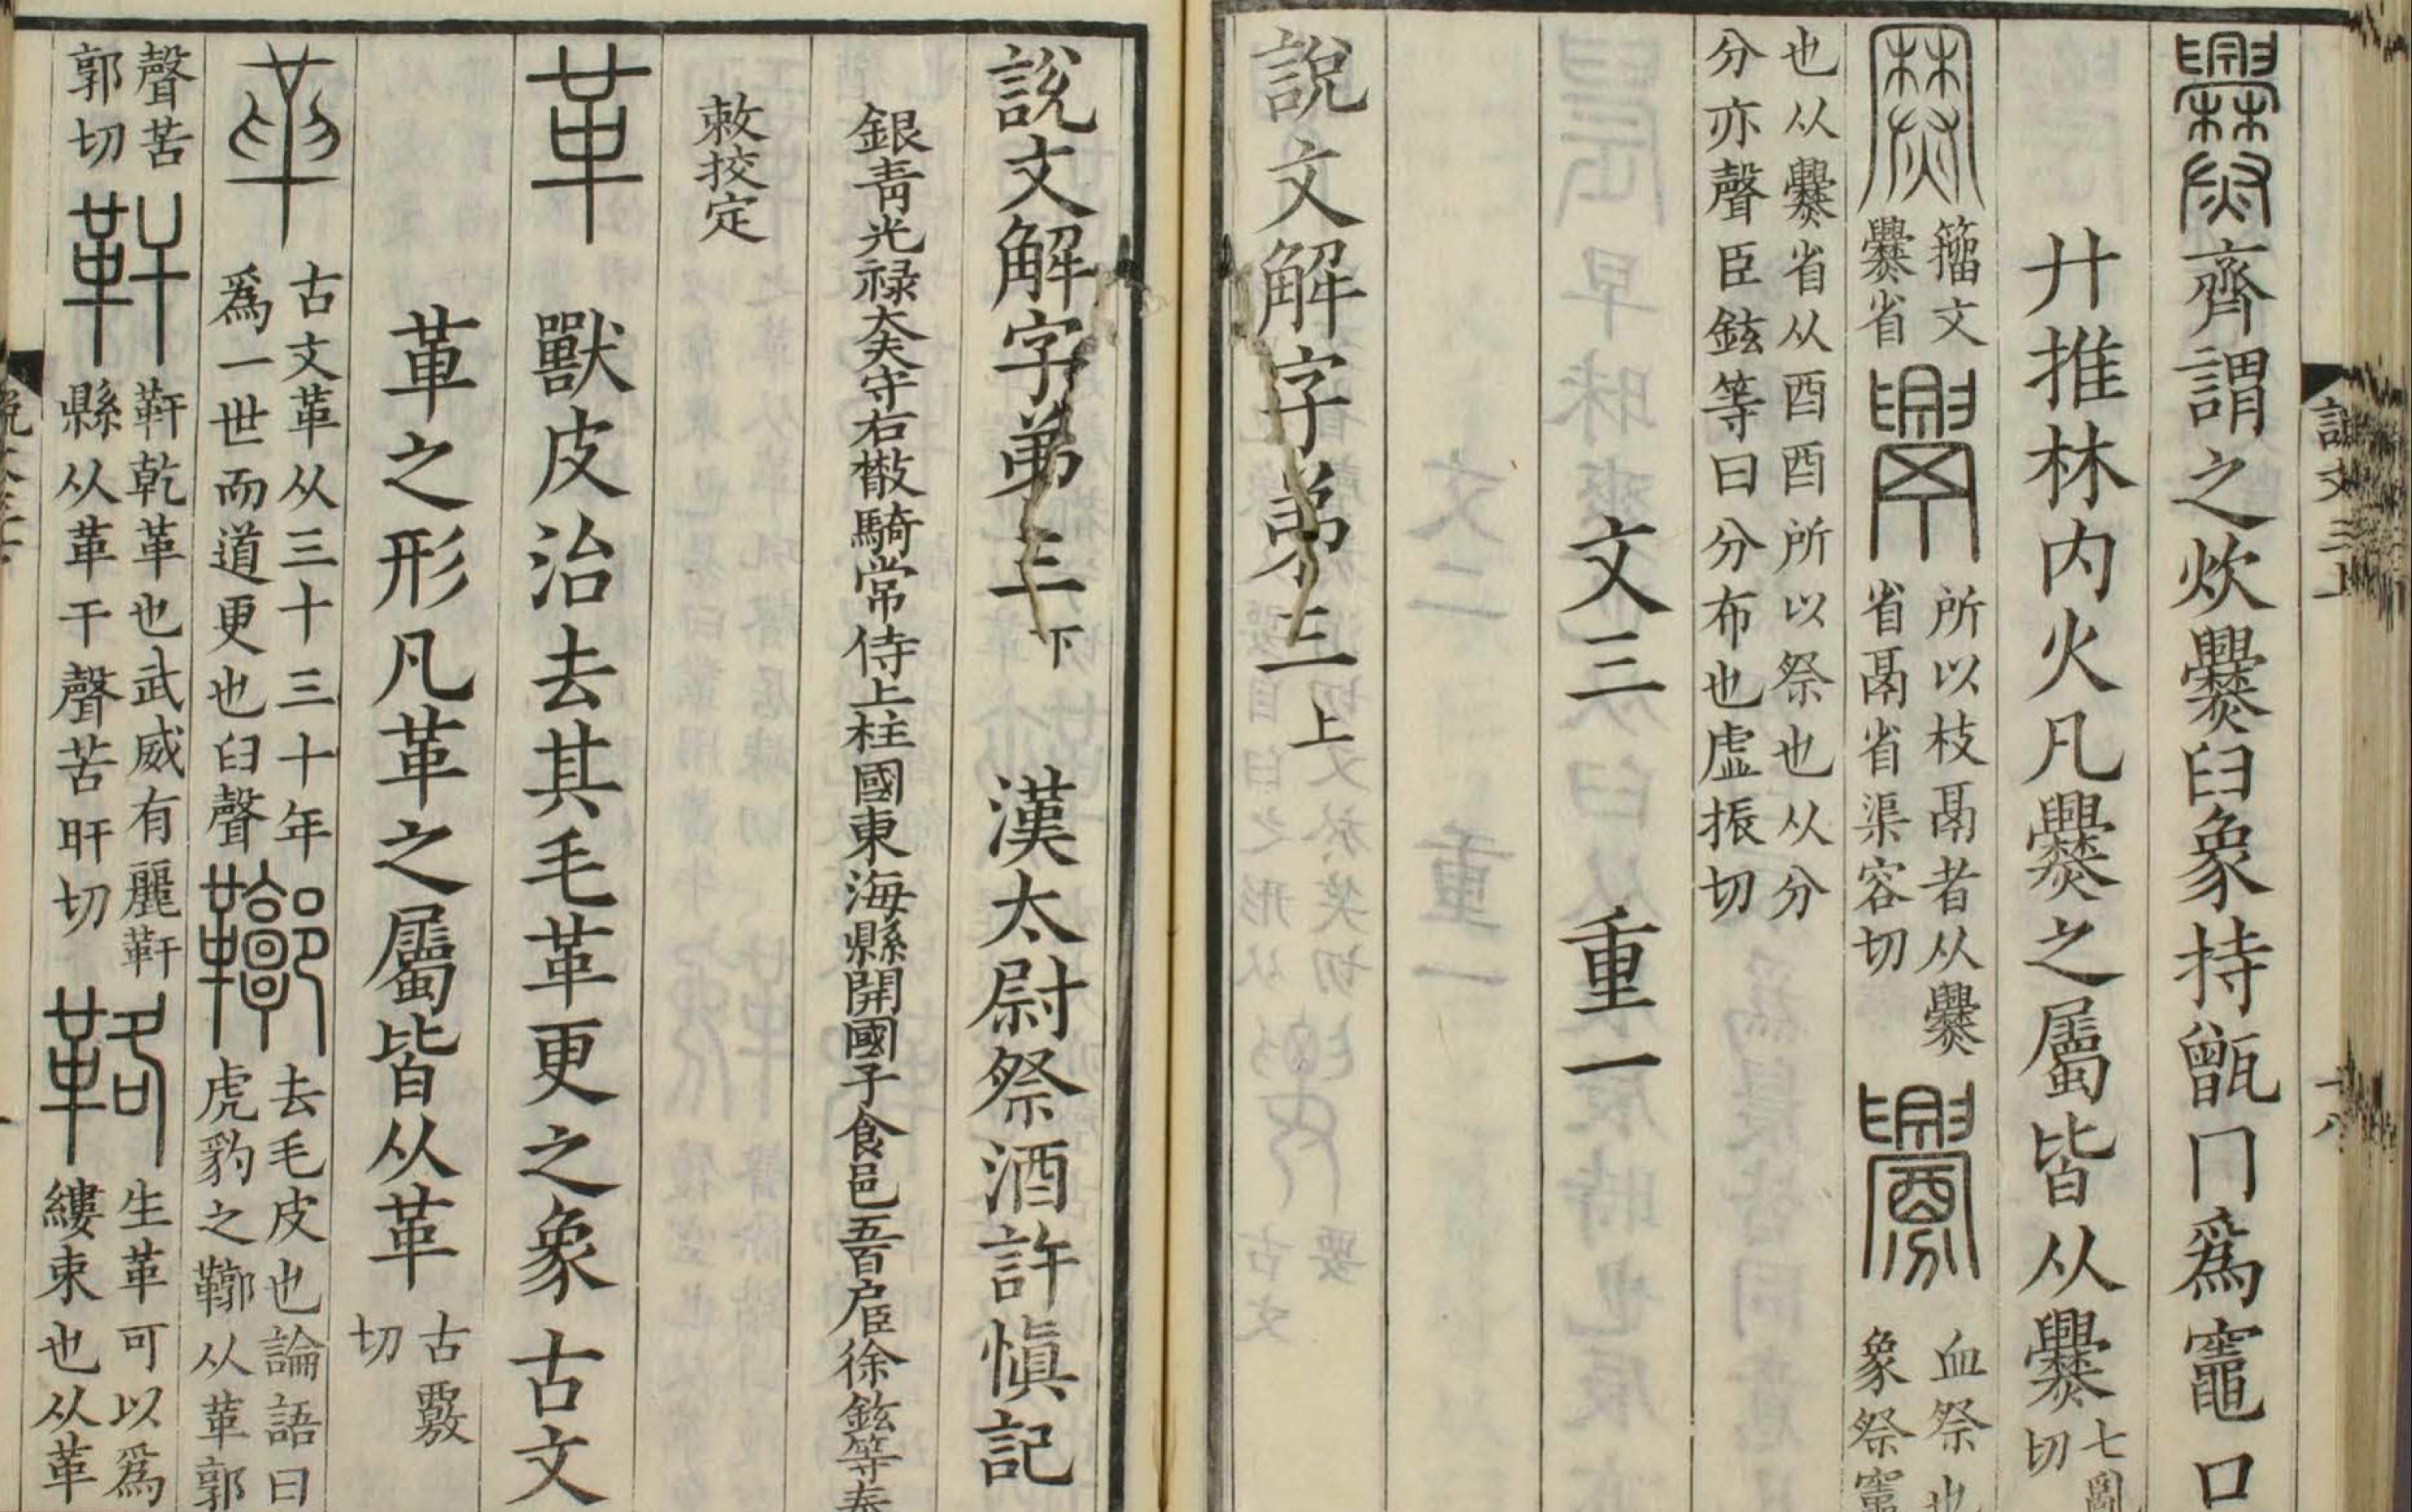 爨齊謂之炊爨臼象持甑冂爲竈口
廾推林内火凡爨之屬皆从爨七亂切
籀文爨省
所以枝鬲者从爨省鬲省渠容切
血祭也象祭竈
也从爨省从酉酉所以祭也从分
分亦聲臣鉉等曰分布也虛振切
文三 重一
說文解字弟三上
說文三上
十八
說文解字弟三下 漢太尉祭酒許愼記
銀青光禄大夫守右散騎常侍上柱國東海縣開國子食邑五百户臣徐鉉等奉
敕挍定
革 獸皮治去其毛革更之象古文
革之形凡革之屬皆从革古覈切
古文革从三十三十年爲一世而道更也臼聲
鞹去毛皮也論語曰虎豹之鞹从革郭
聲苦郭切
靬靬乾革也武威有麗靬縣从革干聲苦旰切
生革可以爲縷束也从革